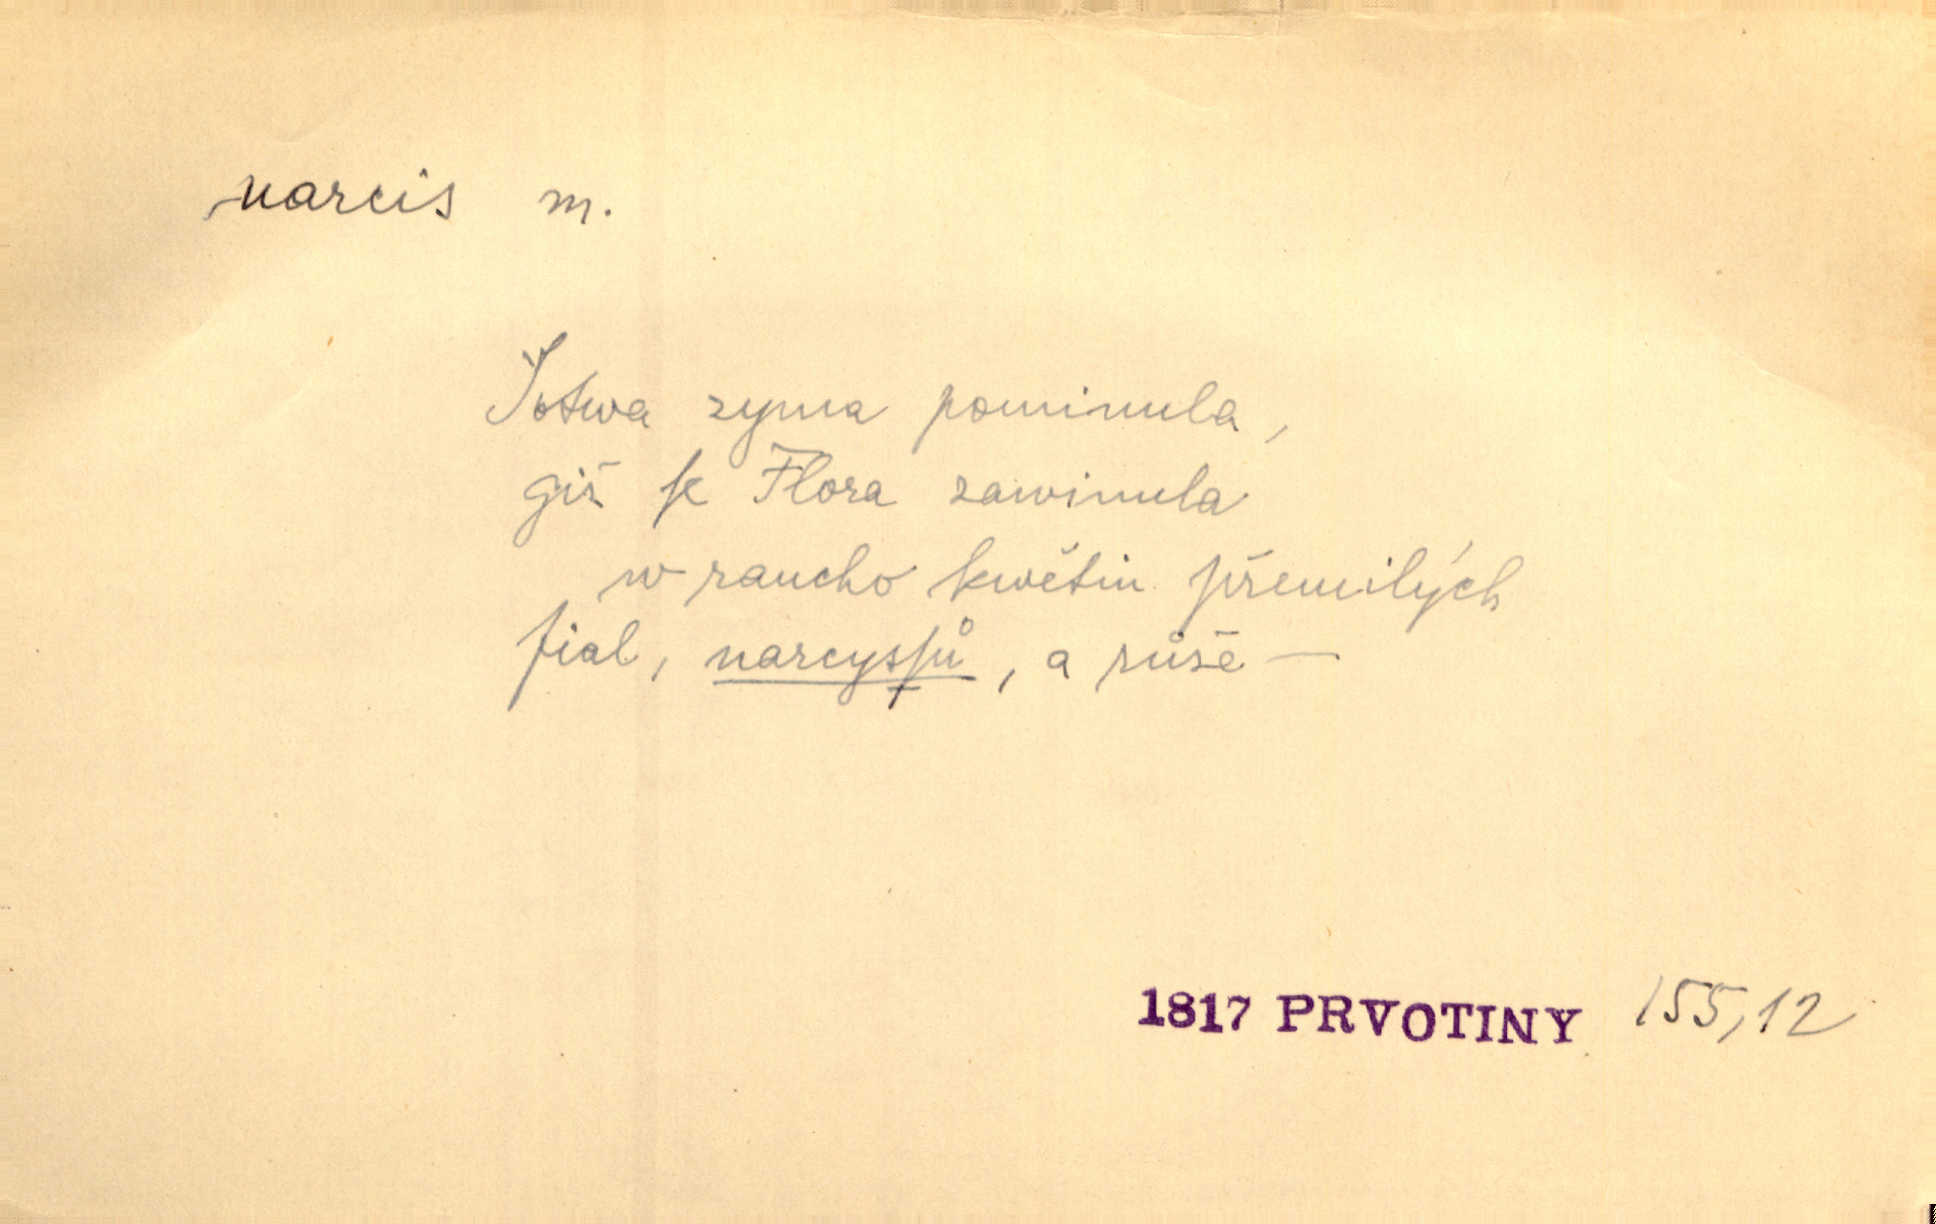 narcis m.
Sotwa zyma pominula,
giž se Flora zawinula
w raucho kwětin přemilých
fial, narcyssů, a růže —
1817 PRVOTINY 155,12